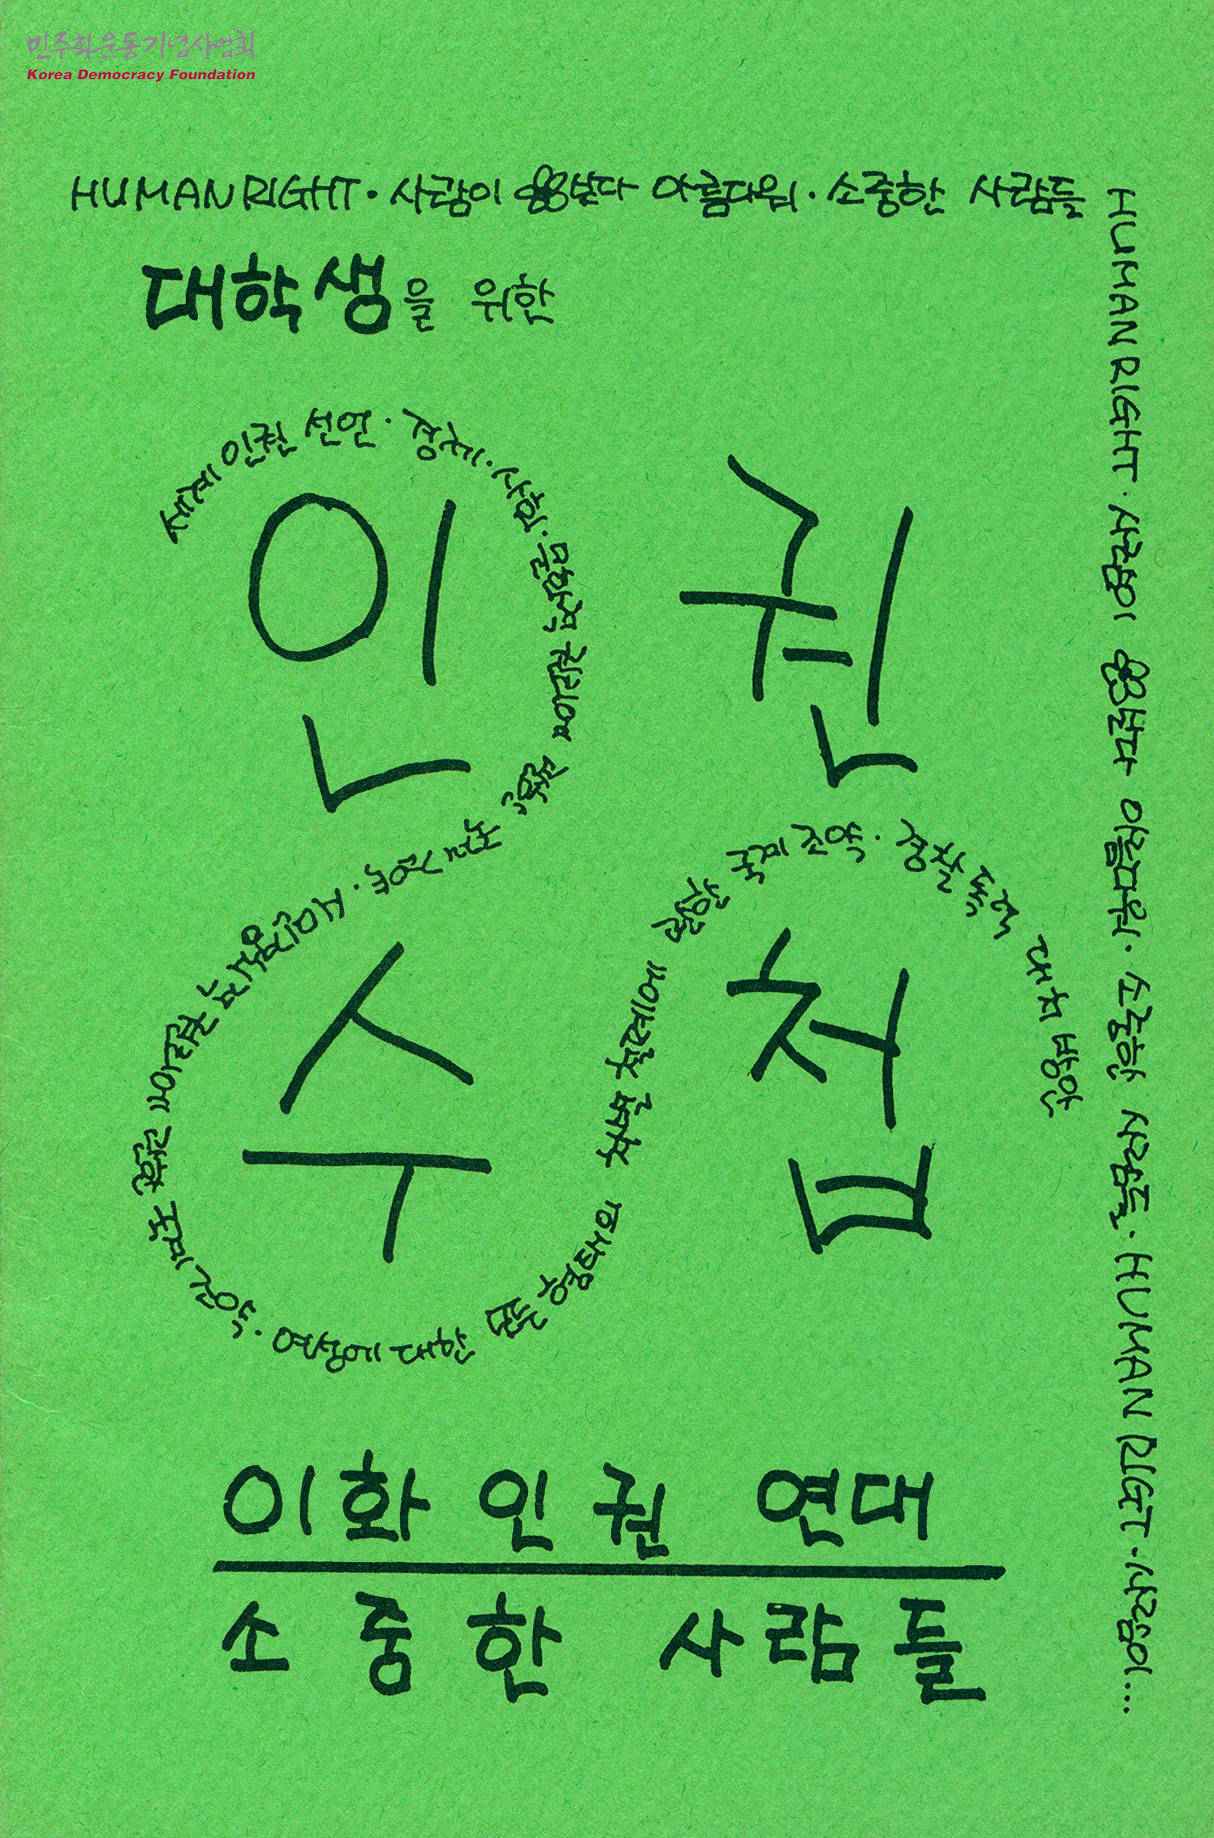 민주화운동기념사업회
Korea Democracy Foundation
HUMAN RIGHT · 사람이 보다 아름다워 · 소중한 사람들
HUMAN RIGHT · 사람이 보다 아름다워 · 소중한 사람들 · HUMAN RIGHT · 사람이...
대학생을 위한
인권
수첩
세계 인권 선언 · 경제 · 사회 · 문화적 권리에 관한 국제 규약 · 시민적 및 정치적 권리에 관한 국제 규약 · 여성에 대한 모든 형태의 차별 철폐에 관한 국제 조약 · 경찰 폭력 대처 방안
이화 인권 연대
소중한 사람들